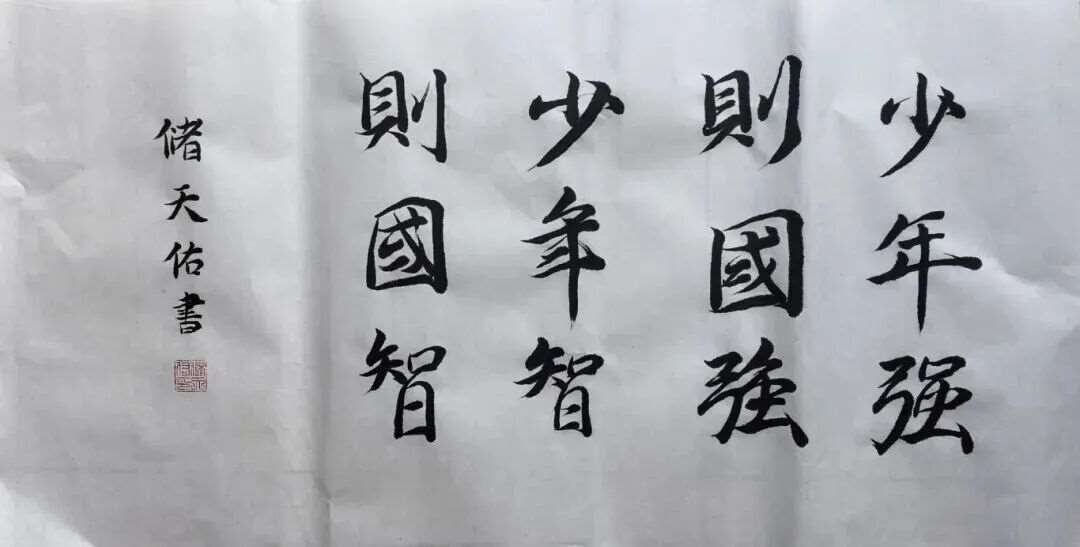 少年强
則國強
少年智
則國智
儲天佑書